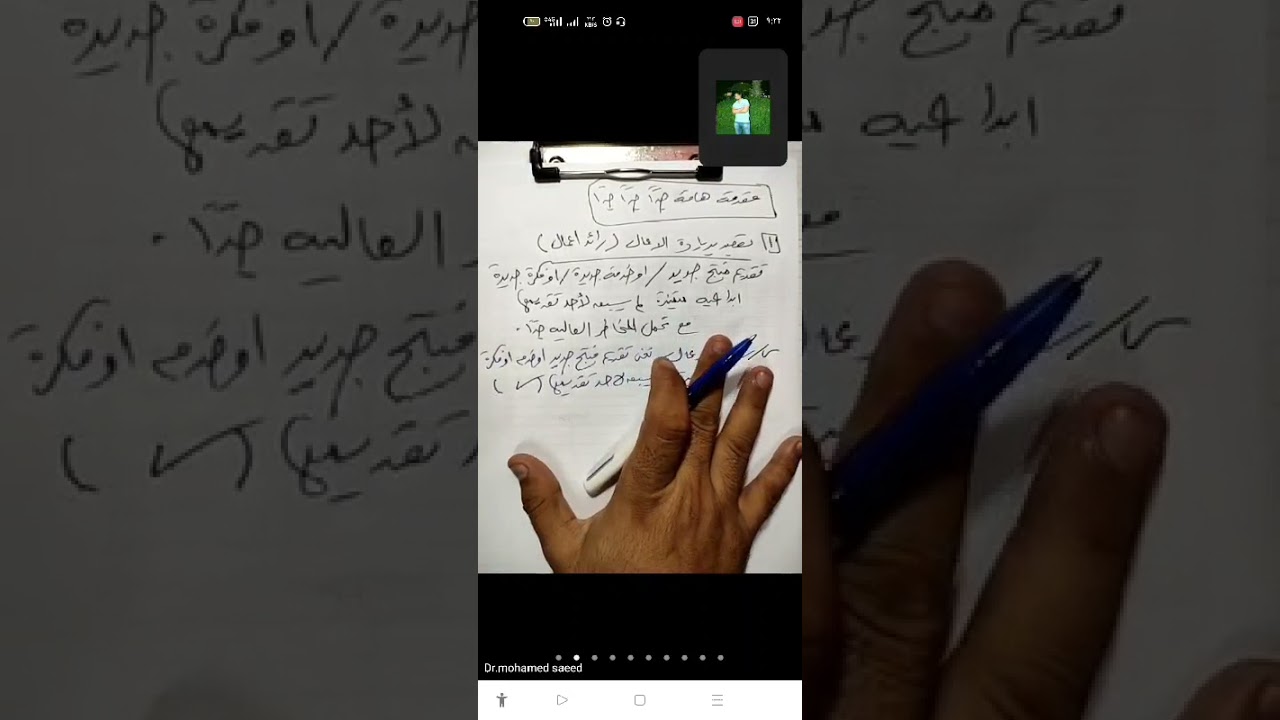 ٩:٢٣
مقدمة هامة جدًا جدًا جدًا
١ يقصد بريادة الاعمال (رائد اعمال)
تقديم منتج جديد / او خدمة جديدة / او فكرة جديدة
ابداعيه متميزة لم يسبق لأحد تقديمها
مع تحمل المخاطر العاليه جدًا .
تقديم منتج جديد او خدمه او فكرة
يسبق لاحد تقديمها (✓)
Dr.mohamed saeed